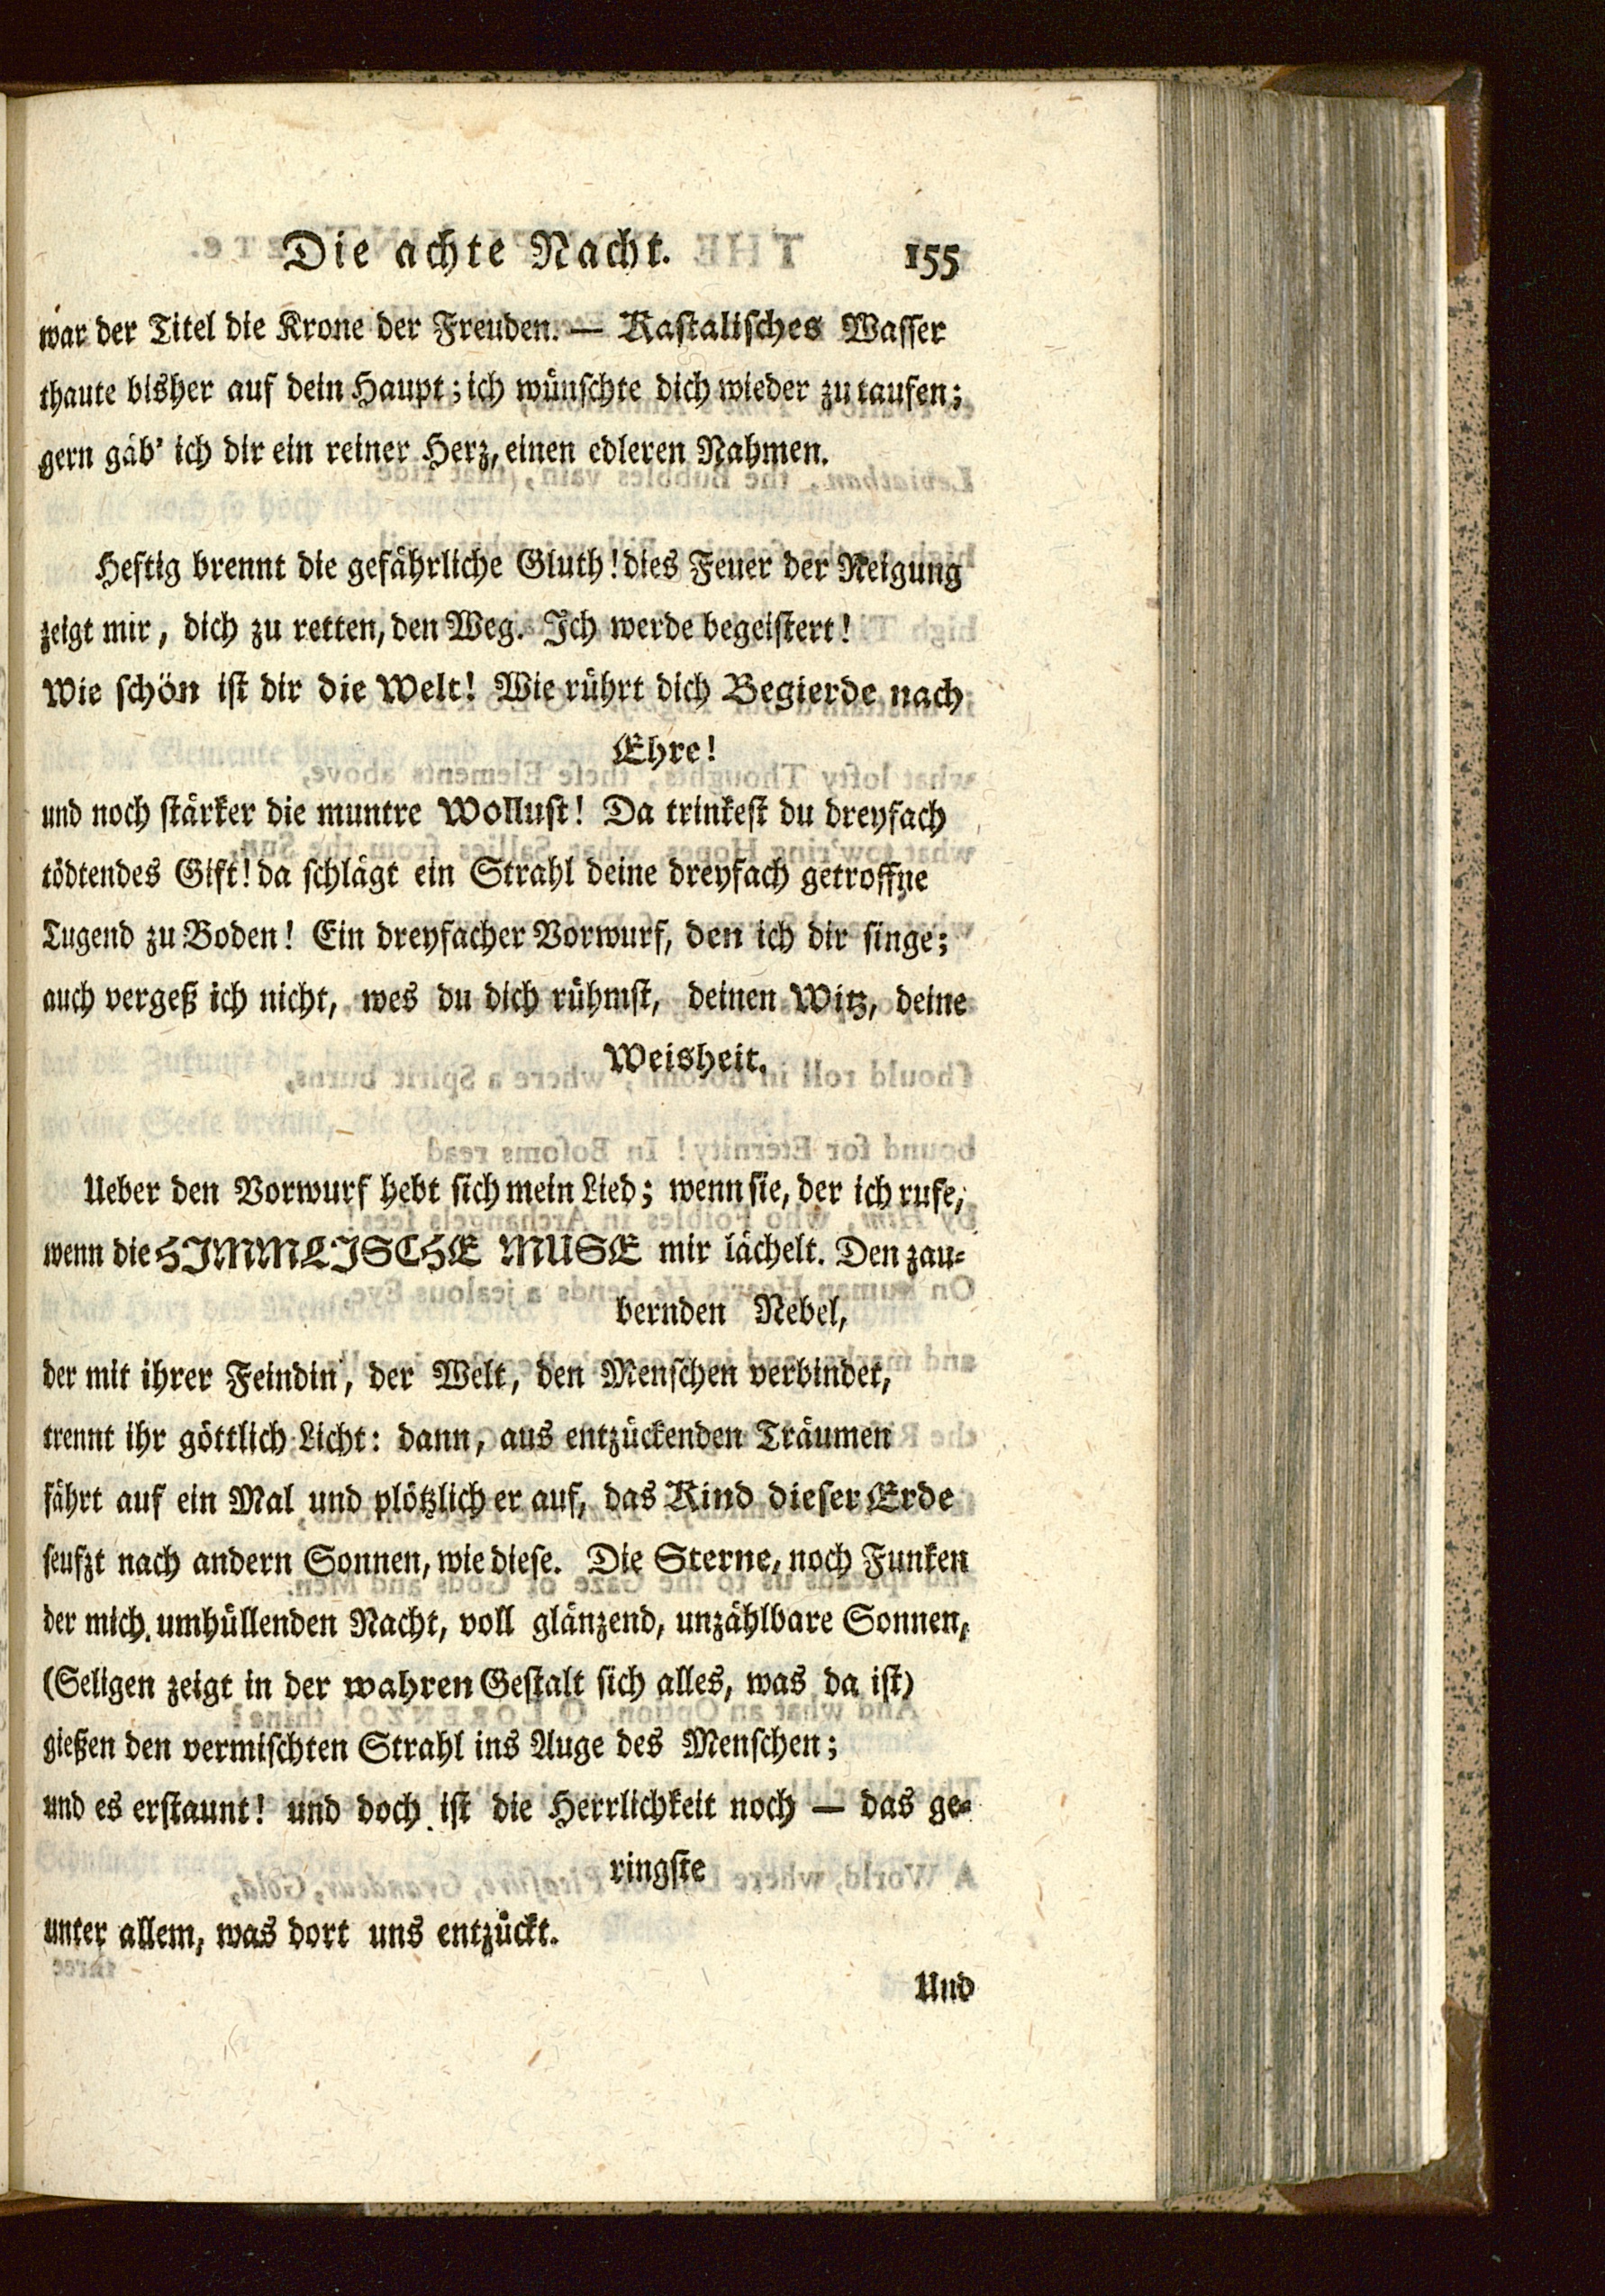 Die achte Nacht. 155
war der Titel die Krone der Freuden. — Kastalisches Wasser
thaute bisher auf dein Haupt; ich wünschte dich wieder zu taufen;
gern gäb' ich dir ein reiner Herz, einen edleren Nahmen.
Heftig brennt die gefährliche Gluth! dies Feuer der Neigung
zeigt mir, dich zu retten, den Weg. Ich werde begeistert!
Wie schön ist dir die Welt! Wie rührt dich Begierde nach
Ehre!
und noch stärker die muntre Wollust! Da trinkest du dreyfach
tödtendes Gift! da schlägt ein Strahl deine dreyfach getroffne
Tugend zu Boden! Ein dreyfacher Vorwurf, den ich dir singe;
auch vergeß ich nicht, wes du dich rühmst, deinen Witz, deine
Weisheit.
Ueber den Vorwurf hebt sich mein Lied; wenn sie, der ich rufe,
wenn die HIMMLISCHE MUSE mir lächelt. Den zau-
bernden Nebel,
der mit ihrer Feindin, der Welt, den Menschen verbindet,
trennt ihr göttlich Licht: dann, aus entzückenden Träumen
fährt auf ein Mal und plötzlich er auf, das Kind dieser Erde
seufzt nach andern Sonnen, wie diese. Die Sterne, noch Funken
der mich umhüllenden Nacht, voll glänzend, unzählbare Sonnen,
(Seligen zeigt in der wahren Gestalt sich alles, was da ist)
gießen den vermischten Strahl ins Auge des Menschen;
und es erstaunt! und doch ist die Herrlichkeit noch — das ge-
ringste
unter allem, was dort uns entzückt.
Und